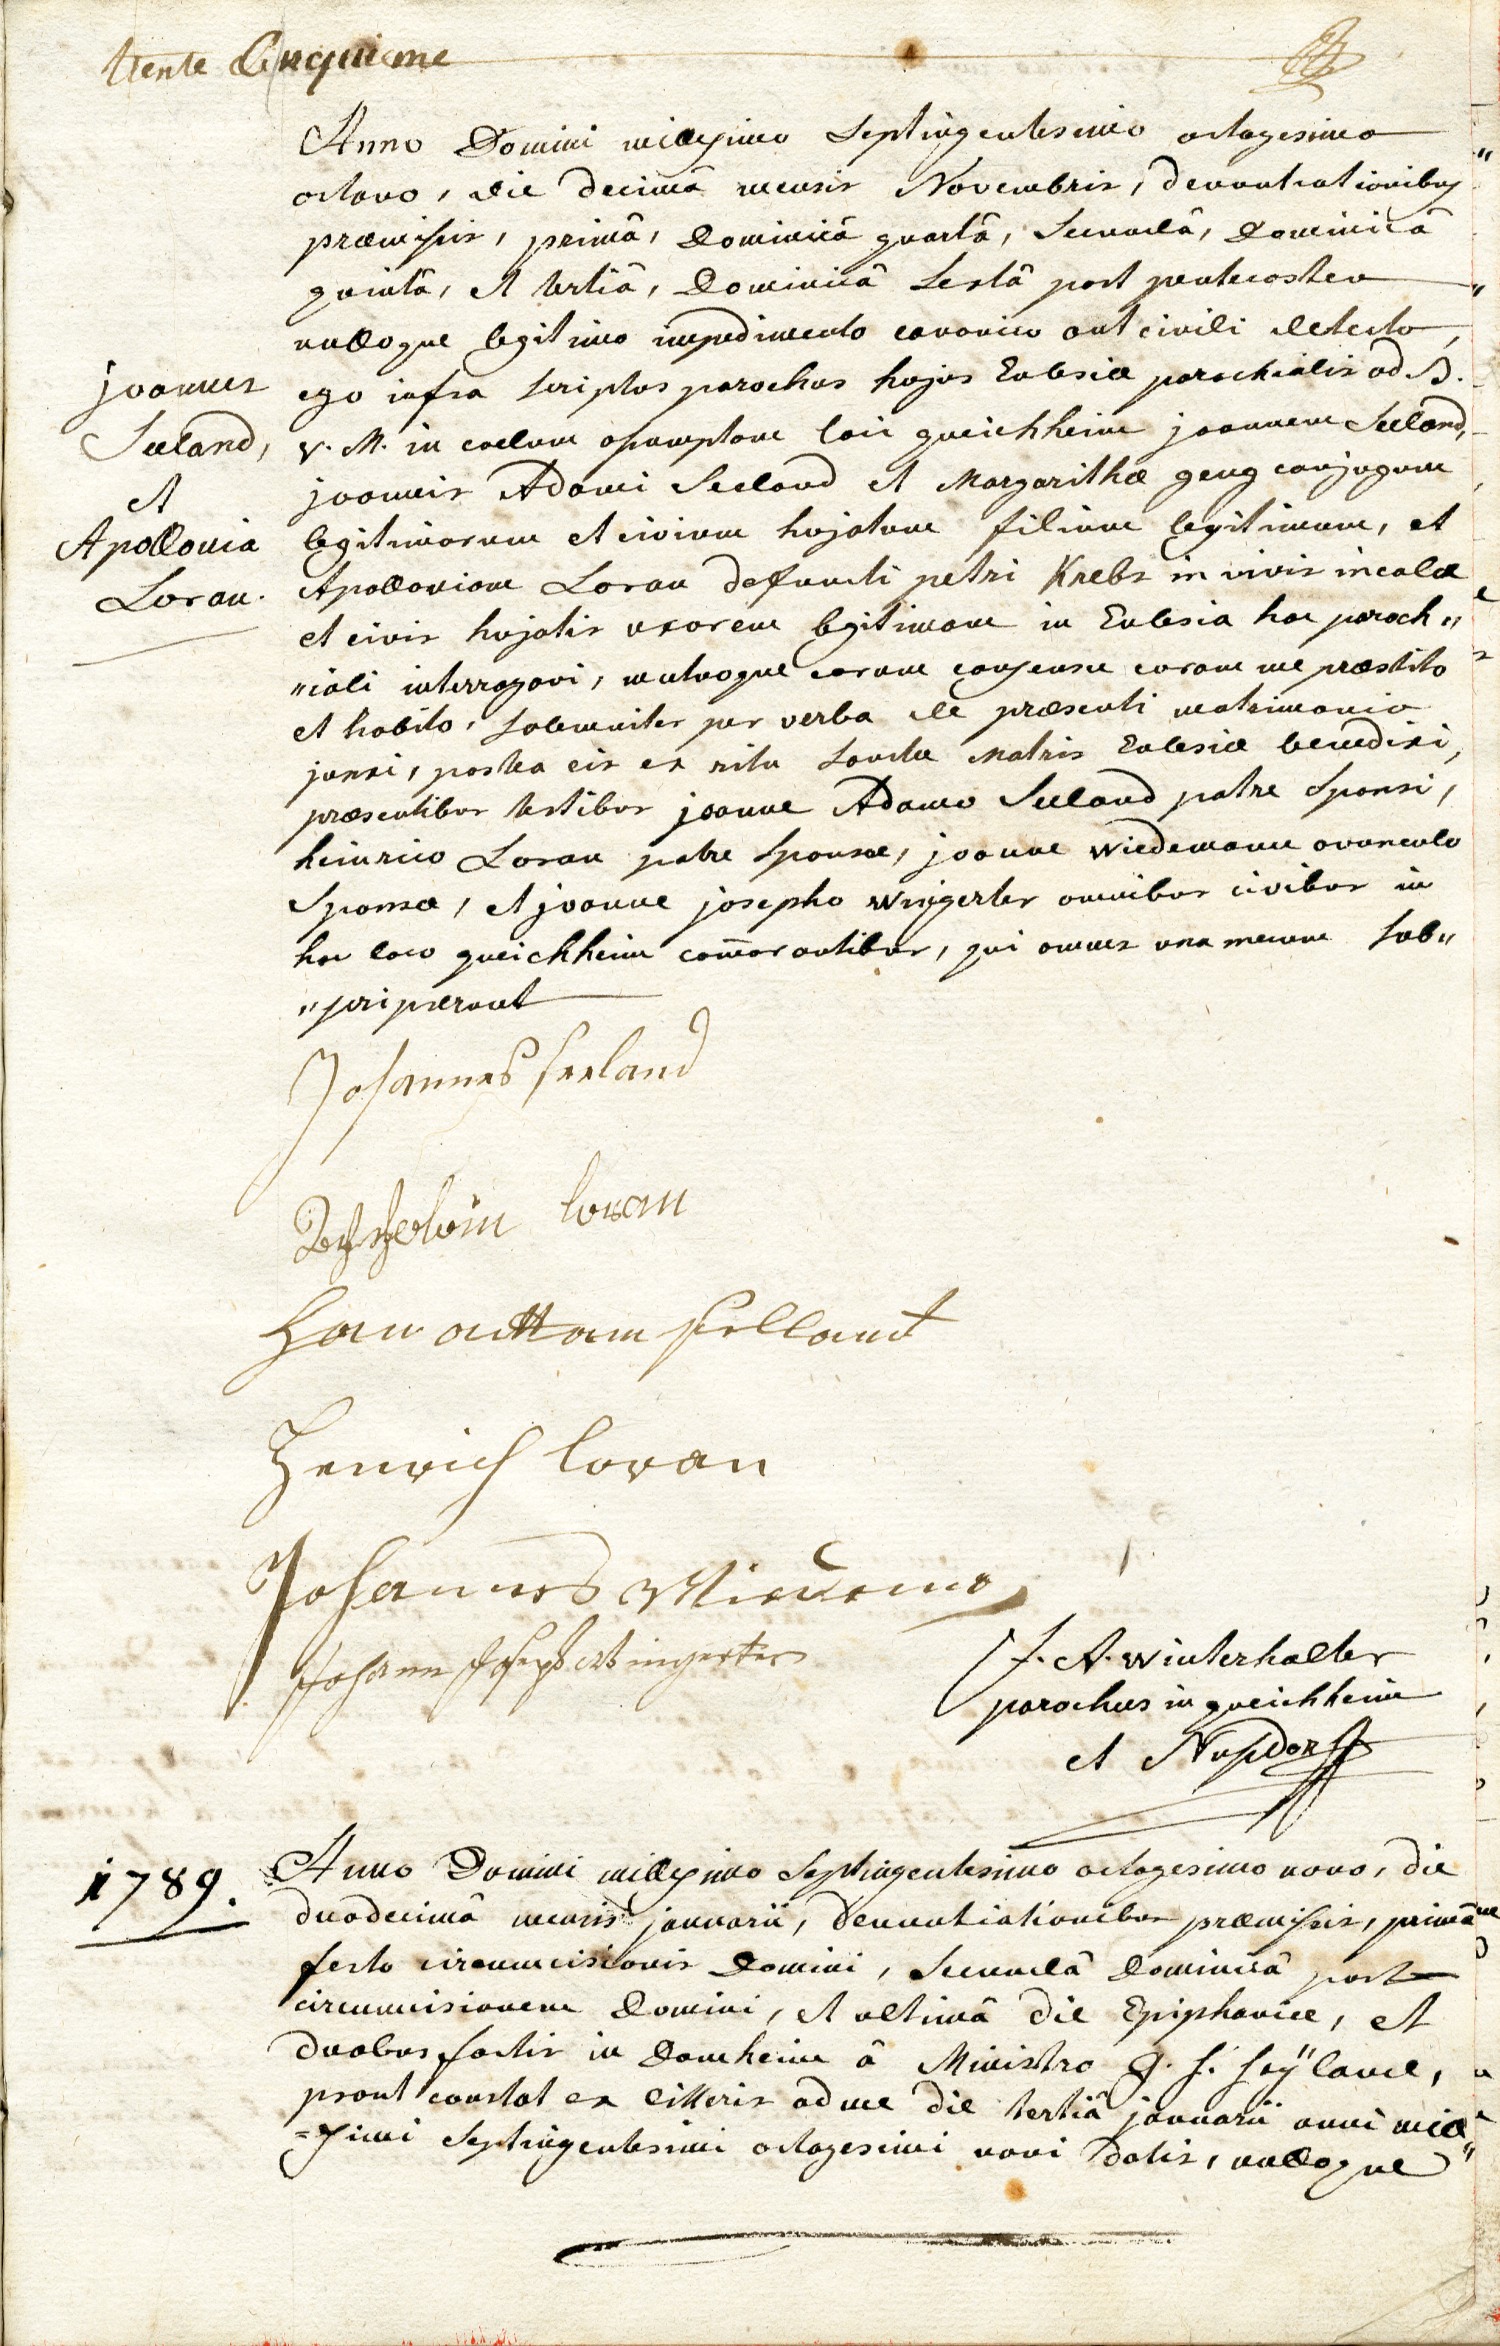 trente Cinquieme
Anno Domini millesimo Septingentesimo octogesimo
octavo, die decimâ mensis Novembris, denuntiationibus
præmissis, primâ, Dominicâ quartâ, Secundâ, Dominicâ
quintâ, et tertiâ, Dominicâ Sextâ post pentecosten
nulloque legitimo impedimento canonico aut civili detecto,
joannes
Seeland,
et
Apollonia
Loran.
ego infra scriptus parochus hujus Eclesiæ parochialis ad B.
V. M. in coelum assumptam loci queichheim joannem Seeland,
joannis Adami Seeland et Margarithæ geng conjugum
legitimorum et civium hujatum filium legitimum, et
Apolloniam Loran defuncti petri Krebs in vivis incolæ
et civis hujatis uxorem legitimam in Eclesia hac paroch"
"iali interrogavi, mutuoque eorum consensu coram me præstito
et habito, solemniter per verba de præsenti matrimonio
junxi, postea eis ex ritu Sanctæ Matris Eclesiæ benedixi,
præsentibus testibus joanne Adamo Seeland patre Sponsi,
heinrico Loran patre Sponsæ, joanne Wiedemann avunculo
Sponsæ, et joanne josepho Wingerter omnibus civibus in
hoc loco queichheim com̄orantibus, qui omnes una mecum sub"
"scripserunt
Johannes seeland
loran
Han attam sellant
Henrich loran
Johannes
Johann Joseph Wingerter
J. A. Winterhalter
parochus in queichheim
et Nusdorf
1789.
Anno Domini millesimo Septingentesimo octogesimo nono, die
duodecimâ mensis januarii, denuntiationibus præmissis, primâ
festo circumcisionis Domini, Secundâ Dominicâ post
circumcisionem Domini, et ultimâ die Epiphaniæ, et
duabus factis in Damheim â Ministro
prout constat ex litteris ad me die tertiâ januarii anni mill"
=simi Septingentesimi octogesimi noni datis, nulloque"